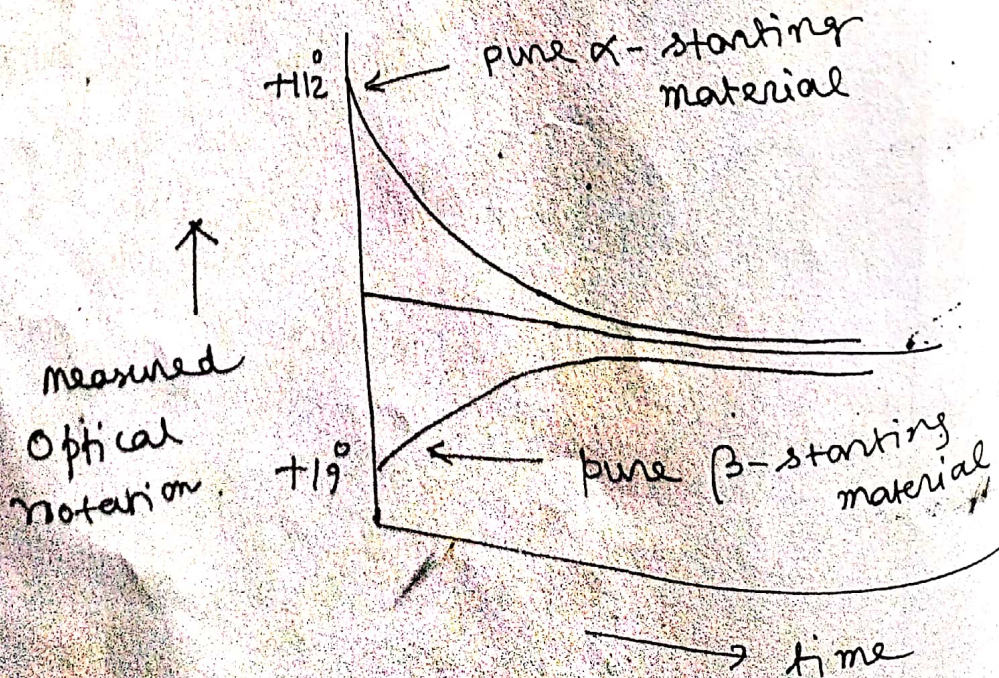 +112°
pure α- starting
material
measured
Optical
rotation.
+19°
pure β-starting
material
time